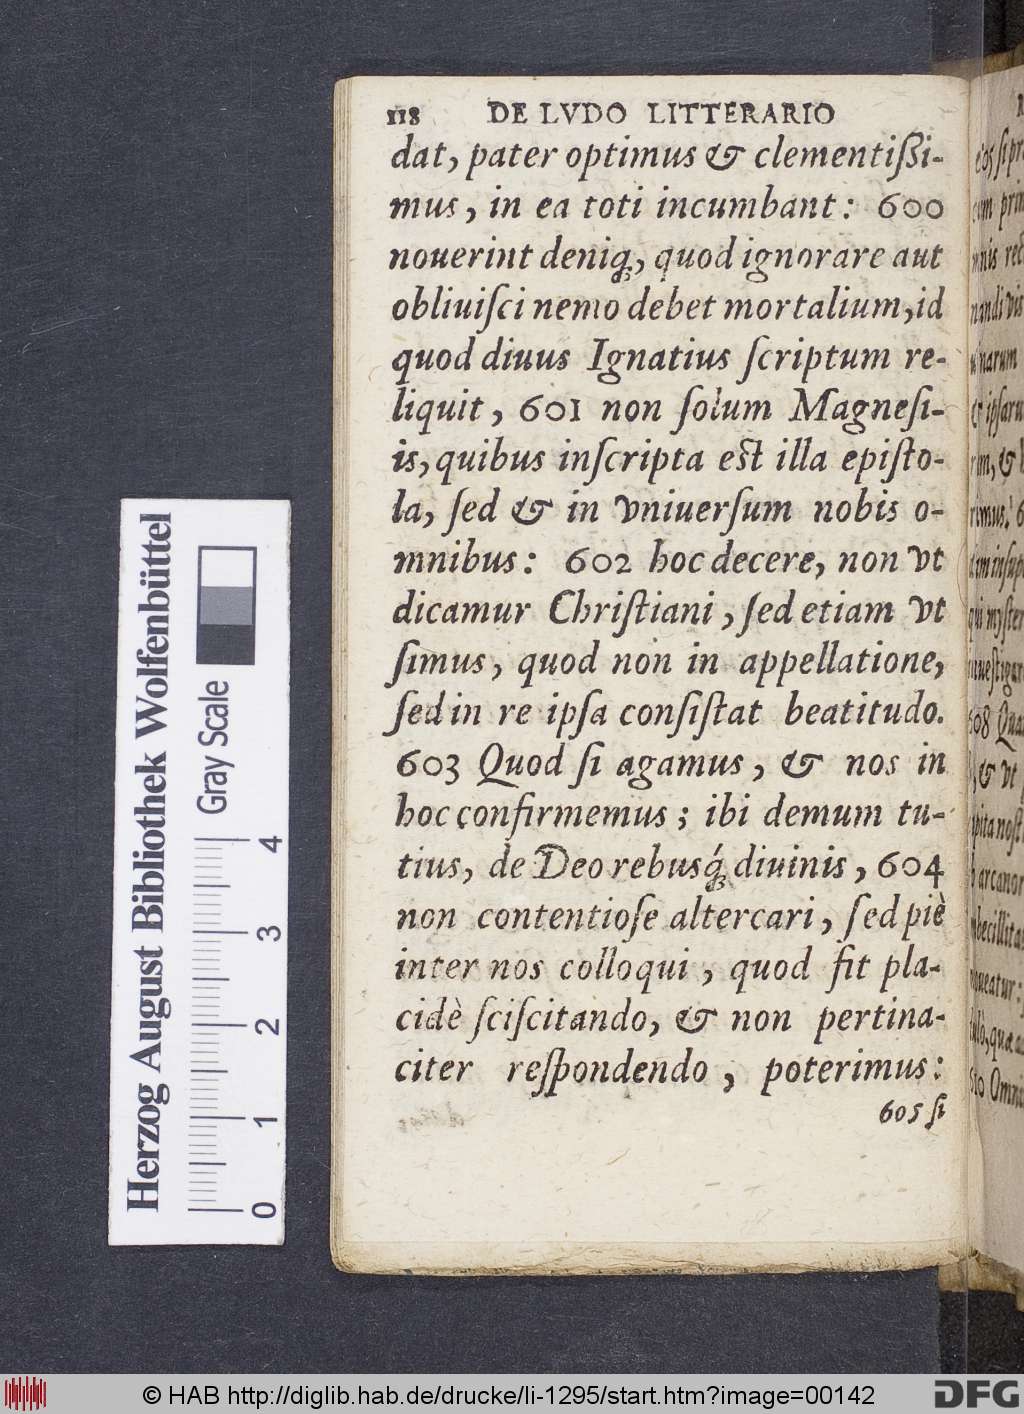 118 DE LVDO LITTERARIO
dat, pater optimus & clementißi-
mus, in ea toti incumbant: 600
nouerint deniq;, quod ignorare aut
obliuiſci nemo debet mortalium, id
quod diuus Ignatius ſcriptum re-
liquit, 601 non ſolum Magneſi-
is, quibus inſcripta eſt illa epiſto-
la, ſed & in vniuerſum nobis o-
mnibus: 602 hoc decere, non vt
dicamur Chriſtiani, ſed etiam vt
ſimus, quod non in appellatione,
ſed in re ipſa conſiſtat beatitudo.
603 Quod ſi agamus, & nos in
hoc confirmemus; ibi demum tu-
tius, de Deo rebusq́; diuinis, 604
non contentioſe altercari, ſed piè
inter nos colloqui, quod fit pla-
cidè ſciſcitando, & non pertina-
citer reſpondendo, poterimus:
605 ſi
Herzog August Bibliothek Wolfenbüttel
Gray Scale
0 1 2 3 4
© HAB http://diglib.hab.de/drucke/li-1295/start.htm?image=00142
DFG